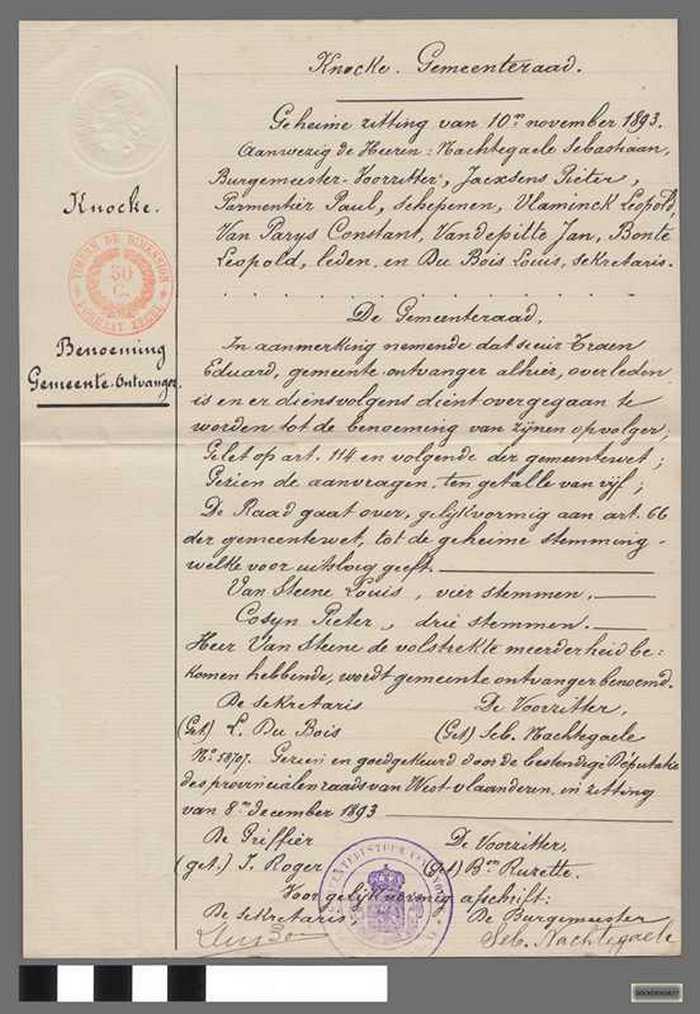 Knocke. Gemeenteraad.
Geheime zitting van 10en november 1893.
Aanwezig de Heeren: Nachtegaele Sebastiaan,
Burgemeester-Voorzitter, Jaexsens Pieter,
Parmentier Paul, schepenen, Vlaminck Leopold,
Van Parys Constant, Vandepitte Jan, Bonte
Leopold, leden, en Du Bois Louis, sekretaris.
Knocke.
TIMBRE DE DIMENSION
50
C.
Benoeming
Gemeente-Ontvanger.
De Gemeenteraad,
In aanmerking nemende dat sieur Traen
Eduard, gemeente-ontvanger alhier, overleden
is en er diensvolgens dient overgegaan te
worden tot de benoeming van zijnen opvolger;
Gelet op art. 114 en volgende der gemeentewet;
Gezien de aanvragen, ten getalle van vijf;
De Raad gaat over, gelijkvormig aan art. 66
der gemeentewet, tot de geheime stemming -
welke voor uitslag geeft.
Van Steene Louis, vier stemmen.
Cosyn Pieter, drie stemmen.
Heer Van Steene de volstrekte meerderheid be:
komen hebbende, wordt gemeente ontvanger benoemd.
De sekretaris De Voorzitter,
(Get) L. Du Bois (Get) Seb. Nachtegaele
No 58707. Gezien en goedgekeurd door de bestendige Deputatie
des provincialen raads van West-vlaanderen, in zitting
van 8en december 1893
De Griffier De Voorzitter,
(get.) J. Roger (Get) Bon Ruzette.
Voor gelijkvormig afschrift:
De sekretaris, De Burgemeester
Seb. Nachtegaele